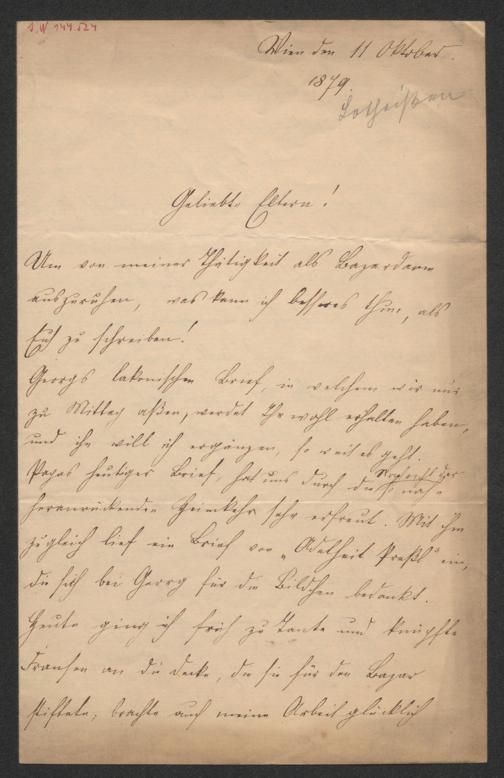 I.N 149.524
Wien den 11 Oktober.
1879.
Lotheissen
Geliebte Eltern!
Um von meiner Thätigkeit als Bazardame
auszuruhen, was kann ich besseres thun, als
Euch zu schreiben!
Georgs lakonischen Brief, in welchem wir nur
zu Mittag aßen, werdet Ihr wohl erhalten haben,
und ihn will ich ergänzen, so weit es geht.
Papas heutiger Brief, hat uns durch die Nachricht der
heranrückenden Heimkehr sehr erfreut. Mit ihm
zugleich lief ein Brief von „Adelheit ein,
die sich bei Georg für die Bildchen bedankt.
Heute ging ich früh zu Tante und knüpfte
Fransen an die Decke, die sie für den Bazar
stiftete, brachte auch meine Arbeit glücklich